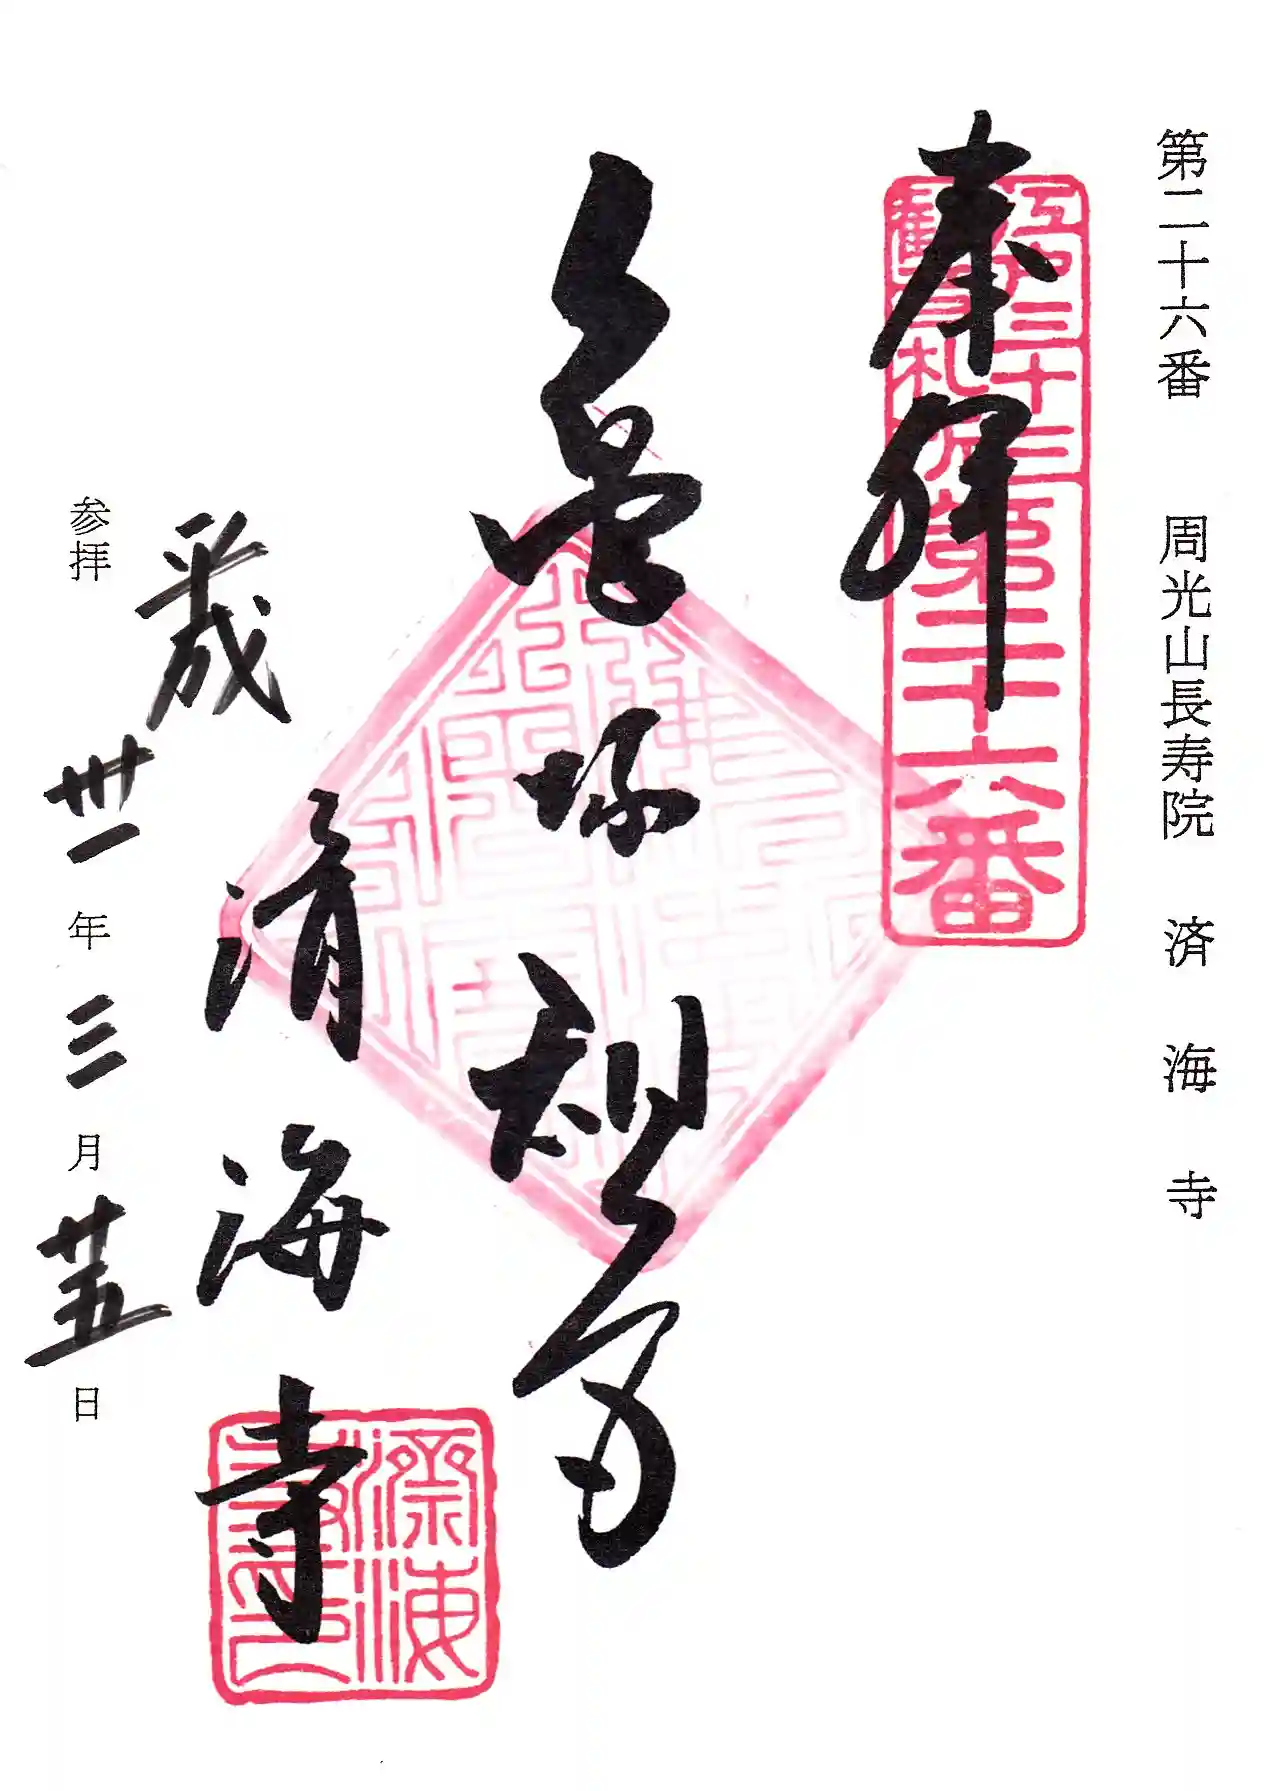 第二十六番 周光山長寿院 済海寺
奉拝
江戸三十三
観音札所第二十六番
亀塚観音
済海寺
済海
寺印
参拝
平成
卅一年三月廿五日